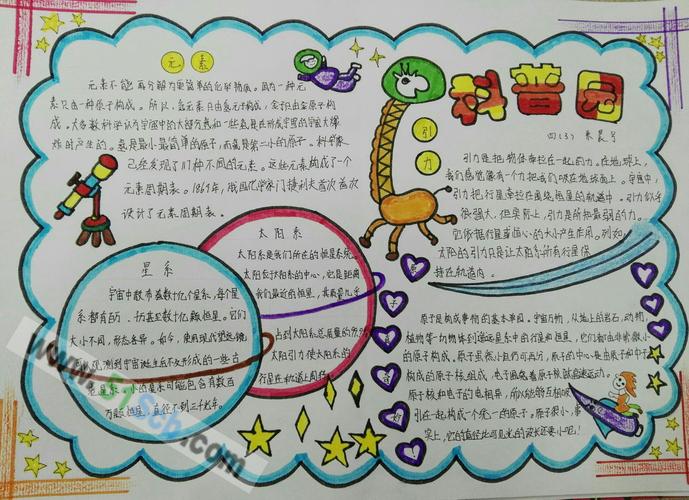 元素
元素不能再分解为更简单的化学物质。因为一种元
素只由一种原子构成。所以,氢元素只由氢子构成,金只由金原子构
成。大多数科学认为宇宙中的大部分氢和一些氦是在形成宇宙的宇宙大爆
炸时产生的。氢是最小最简单的原子,而氦是第二小的原子。科学家
已经发现了111种不同的元素。这些元素构成了一个
元素周期表。1869年,俄国化学家门捷列夫首次
设计了元素周期表。
科普园
四(3)
引力
引力是把物体牵拉在一起的力。在地球上,
我们感觉像有一个力把我们吸在地球表面上。宇宙中,
引力把行星牵拉在围绕恒星的轨道中。引力似乎
很强大,但实际上,引力是所知最弱的力。
它依据行星或恒心的大小产生作用。例如,
太阳的引力只是让太阳系所有行星保
持在轨道内。
太阳系
太阳系是我们所在的恒星系统。
太阳是太阳系的中心,它是距离
我们最近的恒星,其质量几乎
占到太阳系总质量的
太阳引力使太阳系的
行星在轨道上
星系
宇宙中散布着数十亿个星系,每个星
系都有的
大小不同,形态各异。如今,使用现代望远镜
可以观测到宇宙诞生后不久形成的一些古
老星系。小的星系可能包含有数百
万颗恒星,直径不到三千光年。
原子
原子是构成事物的基本单间。宇宙万物,从地上的岩石、动物、
植物等一切物体到遥远星系中的行星和恒星,它们都由非常微小
的原子构成。原子虽微小但仍可再分,原子的中心是由质子和中子
构成的原子核组成,电子围绕着原子核高速运动。
原子核和电子的电相异,所以能够互相吸
引在一起构成一个完一的原子。原子很小,事
实上,它的直径比可见光的波长还要小呢!